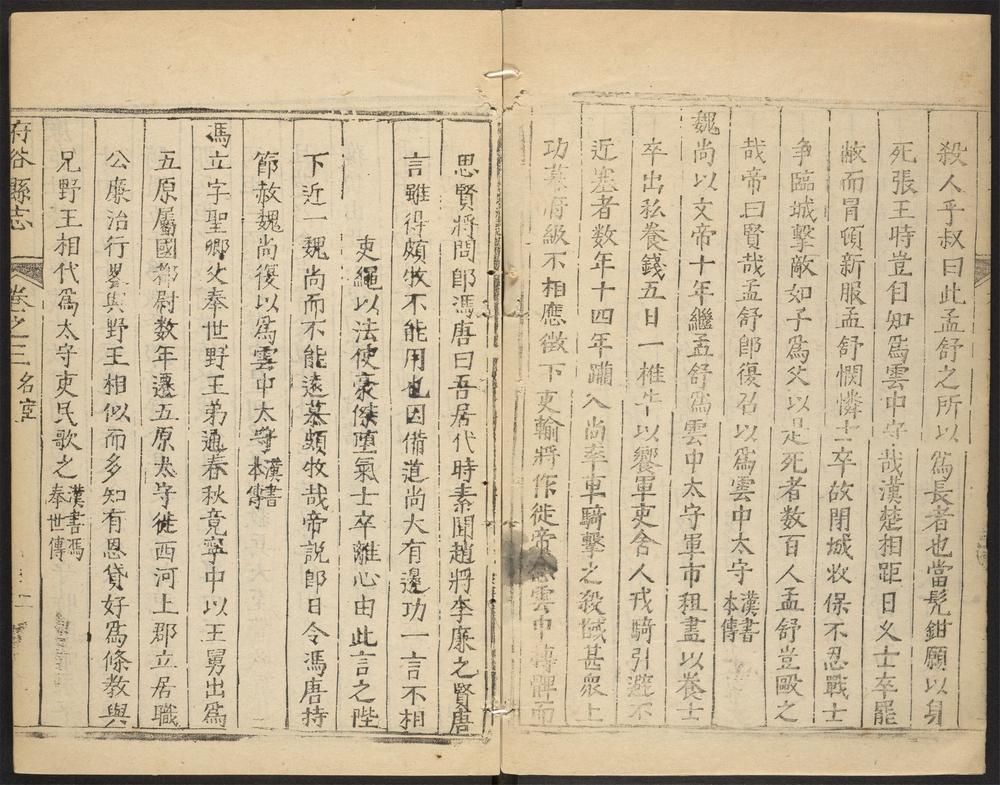 殺人乎叔曰此孟舒之所以爲長者也當髠鉗願以身
死張王時豈自知爲雲中守哉漢楚相距日久士卒罷
敝而冒頓新服孟舒憫憐士卒故閉城收保不忍戰士
爭臨城擊敵如子爲父以是死者数百人孟舒豈毆之
哉帝曰賢哉孟舒卽復召以爲雲中太守漢書本傳
魏尚以文帝十年繼孟舒爲雲中太守軍市租盡以養士
卒出私養錢五日一椎牛以饗軍吏舍人戎騎引避不
近塞者数年十四年躪入尚率車騎擊之殺馘甚衆上
功幕府級不相應徵下吏輸將作徒帝念雲中轉
思賢將問郎馮唐曰吾居代時素聞趙將李廉之賢唐
言雖得頗牧不能用也因備道尚大有邊功一言不相
吏繩以法使豪傑堕氣士卒離心由此言之陛
下近一魏尚而不能遠慕頗牧哉帝説卽日令馮唐持
節赦魏尚復以爲雲中太守漢書本傳
馮立字聖卿父奉世野王弟通春秋竟寧中以王舅出爲
五原屬國都尉数年遷五原太守徙西河上郡立居職
公廉治行畧與野王相似而多知有恩貸好爲條教與
兄野王相代爲太守吏民歌之漢書馮奉世傳
府谷縣志 卷之三 名宦